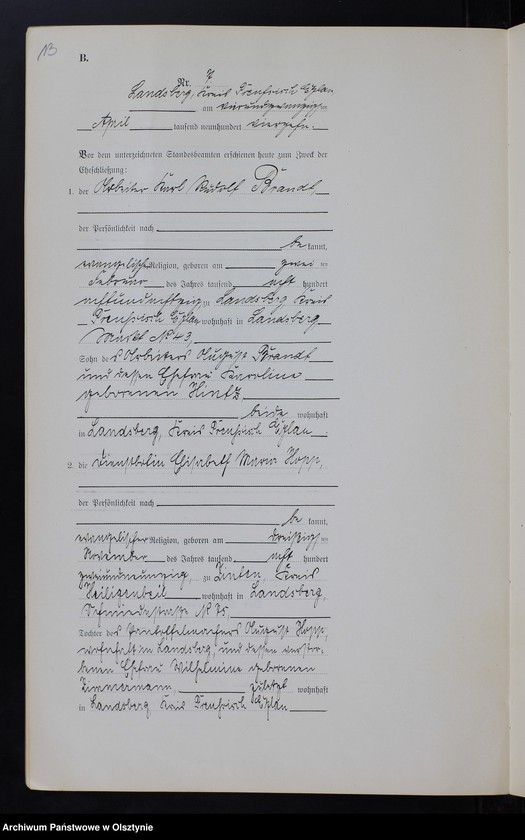 13
B.
Nr. 7
Landsberg, Kreis Preußisch Eylau
am vierundzwanzigsten
April tausend neunhundert vierzehn.
Vor dem unterzeichneten Standesbeamten erschienen heute zum Zweck der
Eheschließung:
1. der Arbeiter Karl Rudolf Brandt,
der Persönlichkeit nach
be kannt,
evangelischer Religion, geboren am zwei ten
Februar des Jahres tausend acht hundert
achtundachtzig zu Landsberg Kreis
Preußisch Eylau wohnhaft in Landsberg
Markt № 43,
Sohn des Arbeiters August Brandt
und dessen Ehefrau Karoline
geborenen Hintz
beide wohnhaft
in Landsberg, Kreis Preußisch Eylau.
2. die Dienstbotin Elisabeth Maria Hopp,
der Persönlichkeit nach
be kannt,
evangelischer Religion, geboren am dreißigsten
November des Jahres tausend acht hundert
zweiundneunzig, zu Zinten, Kreis
Heiligenbeil wohnhaft in Landsberg,
Schmiedestraße №
Tochter des Pantoffelmachers August Hopp,
wohnhaft in Landsberg, und dessen verstor-
benen Ehefrau Wilhelmine geborenen
Zimmermann, zuletzt wohnhaft
in Landsberg Kreis Preußisch Eylau
Archiwum Państwowe w Olsztynie